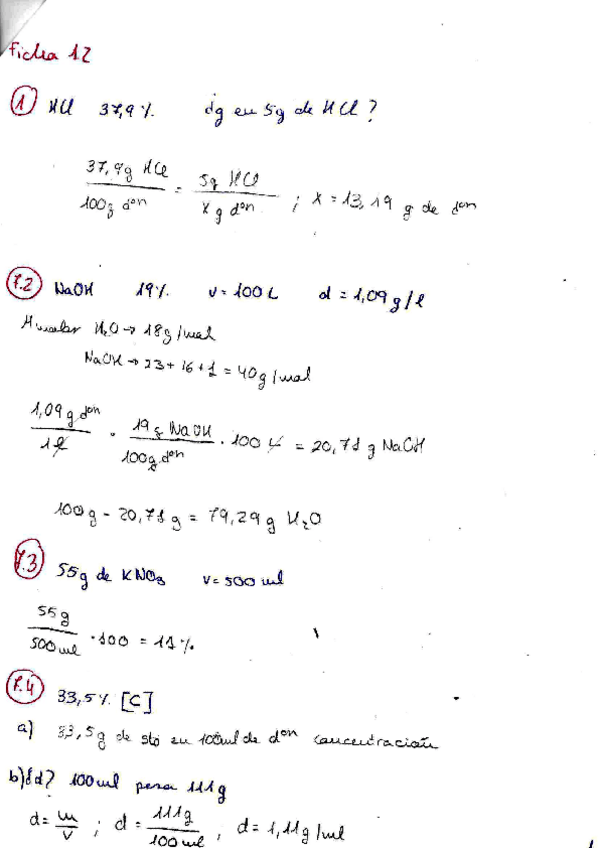 Ficha 12
1 HCl 37,9% ¿g en 5g de HCl?
37,9g HCl / 100g dºn = 5g HCl / x g dºn ; x = 13,19 g de dºn
7.2 NaOH 19% v = 100 L d = 1,09 g/l
H2O → 18g/mol
NaOH → 23 + 16 + 1 = 40g/mol
1,09 g dºn / 1 l · 19 g NaOH / 100g dºn · 100 L = 20,71 g NaOH
100g - 20,71 g = 79,29 g H2O
7.3 55g de KNO3 v = 500 ml
55g / 500 ml · 100 = 11%
7.4 33,5% [C]
a) 33,5g de sto en 100ml de dºn concentración
b) ¿d? 100 ml pesa 111g
d = m / v ; d = 111g / 100 ml ; d = 1,11g/ml